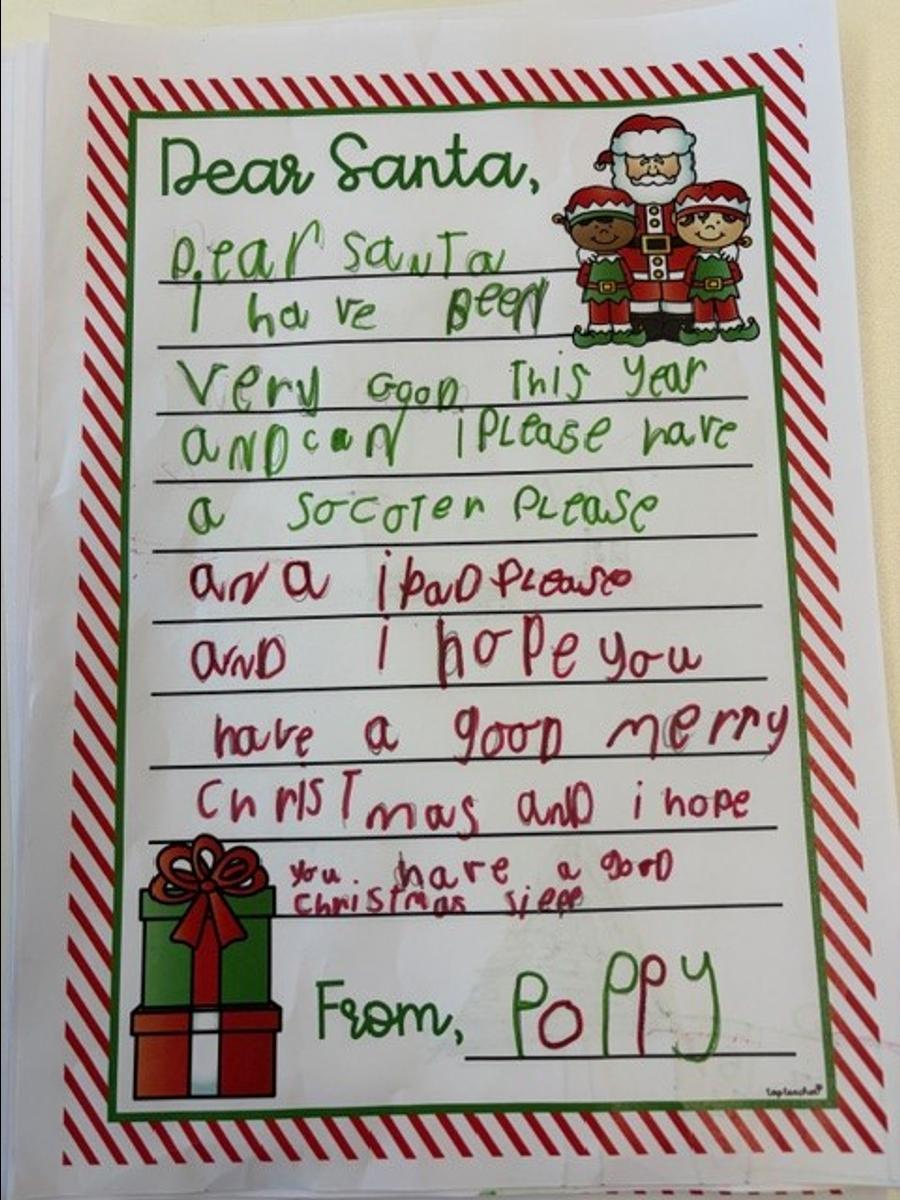 Dear Santa,
Dear Santa
I have Been
Very Good This year
and can i Please have
a socoter Please
an a ipad Please
and i hope you
have a good merry
Christmas and i hope
you have a good
Christmas sieep
From, Poppy